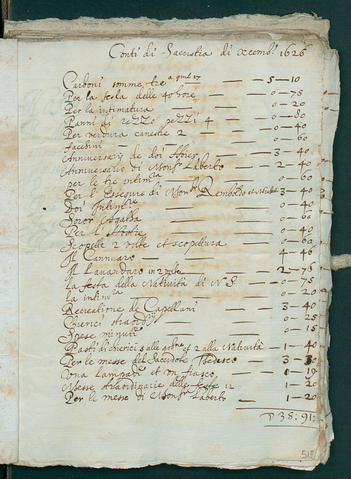 Conti di Sacrestia di Xcemb. 1626
Carboni somme tre a giuli 17 — 5—10
Per la festa delle 40 hore — 0—75
Per la intimatura — 0—20
Panni di pezzi 4 — 0—80
Per verdura canestre 2 — 0—40
facchini — 0—60
Anniversario de doi — 3—40
Anniversario di Mons. Laberto — 2—40
per le tre intim — 0—60
Per l'Essequie di Mons. et — 3—40
Doi Intim — 0—40
Soror Agatha — 0—60
Per l'Hostie — 0—40
Scopette 2 volte et scopettura — 0—60
Il Cannuaro — 4—46
Il Lavandaro in 2 volte — 2—76
La festa della Natività di N. S. — 0—75
la intim — 0—20
Recreatione de Capellani — 3—40
Chierici straord — 0—25
Spese minute — 0—15
Pasti di chierici 2 alle et 2 alla Natività — 1—40
Per le messe del Sacerdote Tedesco — 3—
Una lampada et un fiasco — 1—19
Messe straordinarie delle feste 12 — 1—20
Per le messe di Mons. Laberto — 1—20
38:91: